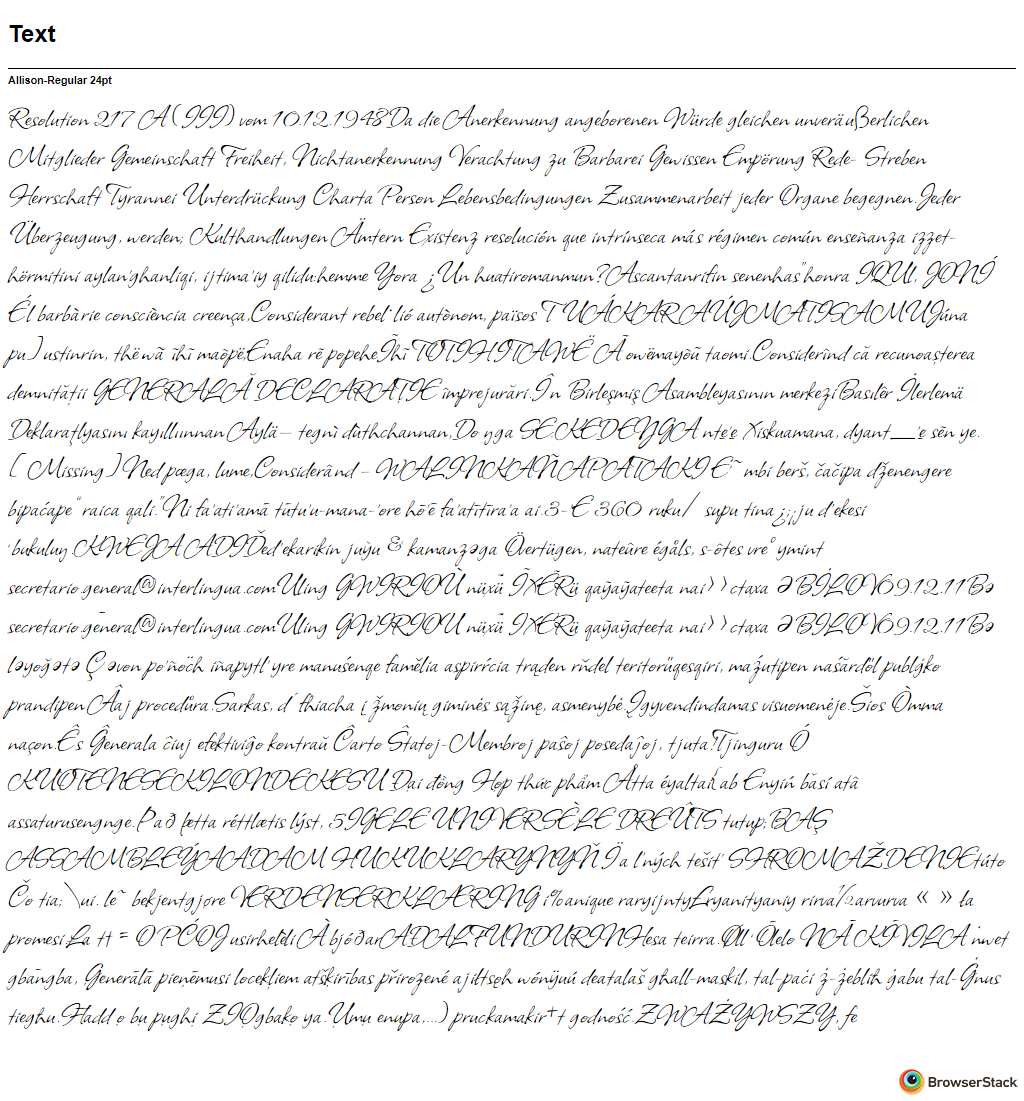 Text
Allison-Regular 24pt
Resolution 217 A (III) vom 10.12.1948 Da die Anerkennung angeborenen Würde gleichen unveräußerlichen
Mitglieder Gemeinschaft Freiheit, Nichtanerkennung Verachtung zu Barbarei Gewissen Empörung Rede- Streben
Herrschaft Tyrannei Unterdrückung Charta Person Lebensbedingungen Zusammenarbeit jeder Organe begegnen. Jeder
Überzeugung, werden; Kulthandlungen Ämtern Existenz resolución que intrínseca más régimen común enseñanza izzet-
hörmitini aylan'ghanliqi, ijtima'iy qilidu:hemme Yora ¿Un huatiromanmun? Ascantanrifin senenhas"honra IQUI, JONÍ
Él barbàrie consciència creença,Considerant rebel·lió autònom, països TUÁKARAÚJMATISAMUJúna
pu]ustinrin, thëwã ĩhĩ maõpë,Enaha rë popehe,Ĩhĩ TOTIHITAWË Ã owëmayõũ taomi.Considerînd că recunoașterea
demnității GENERALĂ DECLARAȚIE împrejurări.În Birleşmiş Asambleyasının merkezi Basılêr İlerlemä
Deklaraţlyasını kayıllıınnan Aylä— tegnì dùthchannan, Do ŋga SE.KEDEŊGA nte'e Xiskuamana, dyant__'e sẽn ye.
[Missing] Ned pœga, lume,Considerãnd – WALINKAÑAPATAKI Ẽ mbi berš, čačipa dženengere
bipaćape"raica qali."Ni fa'ati'amā tūtu'u-mana-'ore hō'ē fa'atītīra'a ai.3-E 360 ruku/ supu tina ¿;¡ju d'ekesi
'bukuluŋ.KWEJA ADIĎed'ekarikin juỳu & kamanzəga Övertügen, nateûre égåls, s-ôtes vre° ymint
secretario.general@interlingua.com Uling GWIRIOÙ nüxü̃ ĨXẼRü qaỹaỹateeta nai››ctaxa ƏBİLOV69.12.11Bə
secretario.general@interlingua.com Uling GWIRIOU nüxü ĨXẼRü qaỹaỹateeta nai››ctaxa ƏBİLOV69.12.11Bə
ləyoğətə Çəvon po'ñoch iñapytl'yre manuśenqe famëlia aspirŕcia trąden rňdel teritorŭqesqiri, maźutipen našãrdől publģko
prandipen Âaj procedůra.Sarkas, d´fhiacha į žmonių giminės sąžinę, asmenybė.Įgyvendindamas visuomenėje.Šios Òmma
naçon.Ês Ĝenerala ĉiuj efektiviĝo kontraŭ Ĉarto Ŝtatoj-Membroj paŝoj posedaĵoj, tjuta!Tjinguru Ó
KUOTENESEKILONDEKESU Đại đồng Hợp thức phẩm Atta éyaltaíí ab Enyiń băsí atã
assaturusengnge.Það þætta réttlætis lýst, 5IGELE UNIVERSÈLE DREÛTS tutup;BAŞ
ASSAMBLEÝAADAM HUKUKLARYNYŇÏa ľných tešiť SHROMAŽDENIEtúto
Čo tia; \ui. le˜ bekjentgjøre VERDENSERKLÆRING i%anique raryijnty£ryanityaniy rirva½aruurva « » ła
promesi Ła ++ = OPČOJ usirhelëli À bjóðar ADALFUNDURIN Hesa teirra.Øll' Ølelo NĀ KĪVILA ńwet
gbāngba, Ģenerālā pieņēmusi locekļiem atšķirības přirozené ajiłtsoh wónijuú deatalaš għall-maskil, tal-paċi ż-żeblih ġabu tal-Ġnus
tieghu.Ħadd ọ bụ pụghị ZIỌgbakọ ya.Ụmụ enupa,...) pruckamakir++ godność.ZWAŻYWSZY, fe
BrowserStack